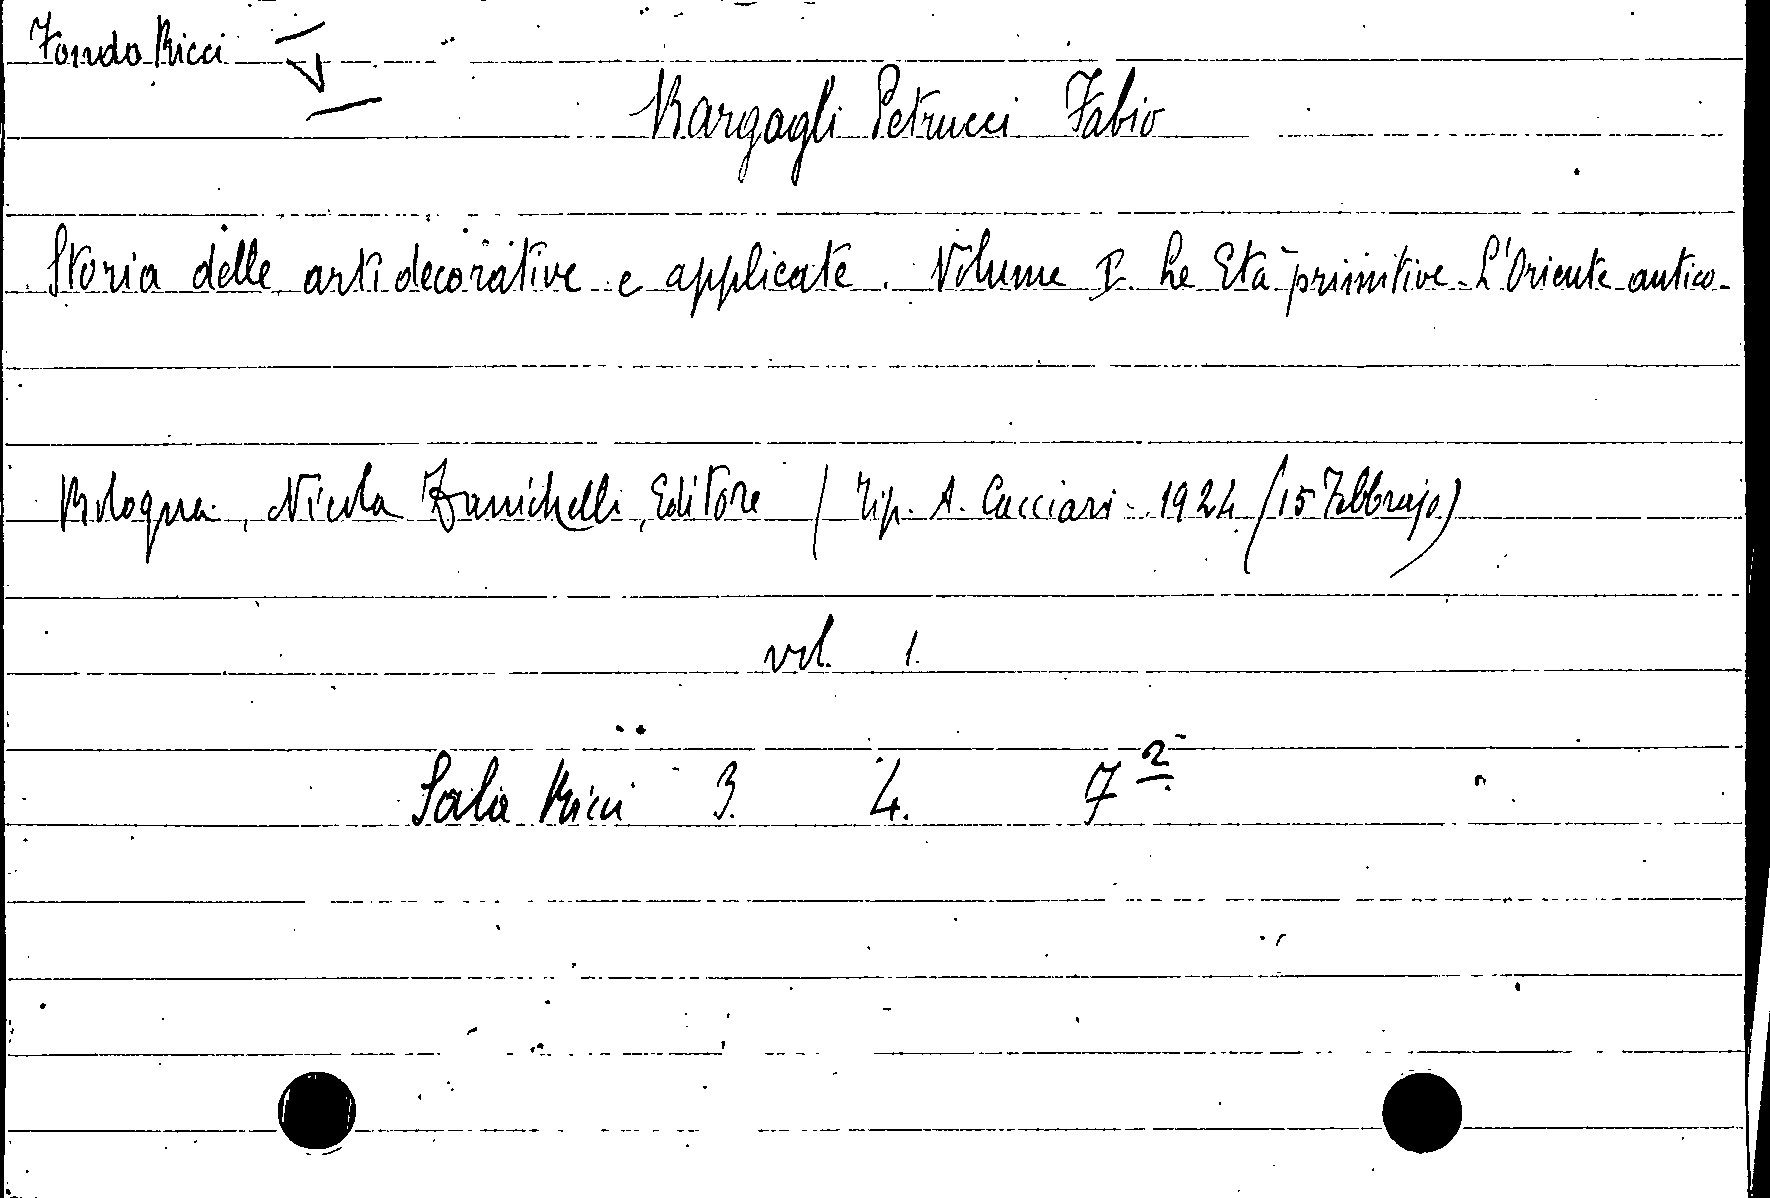 Fondo Ricci
Bargagli Petrucci Fabio
Storia delle arti decorative e applicate. Volume I. Le Età primitive - L'Oriente antico -
Bologna, Nicola Zanichelli, Editore / Tip. A. Cacciari - 1924 (15 Febbrajo)
vol. 1.
Sala Ricci 3. 4. 7 2